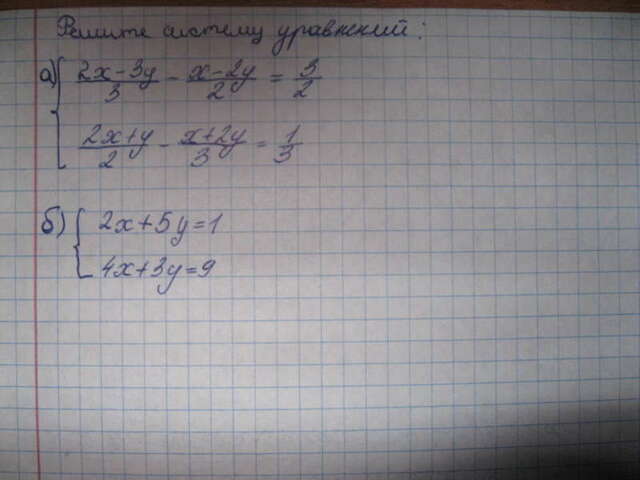 Решите систему уравнений:
а) { (2x-3y)/3 - (x-2y)/2 = 3/2
(2x+y)/2 - (x+2y)/3 = 1/3
б) { 2x+5y=1
4x+3y=9